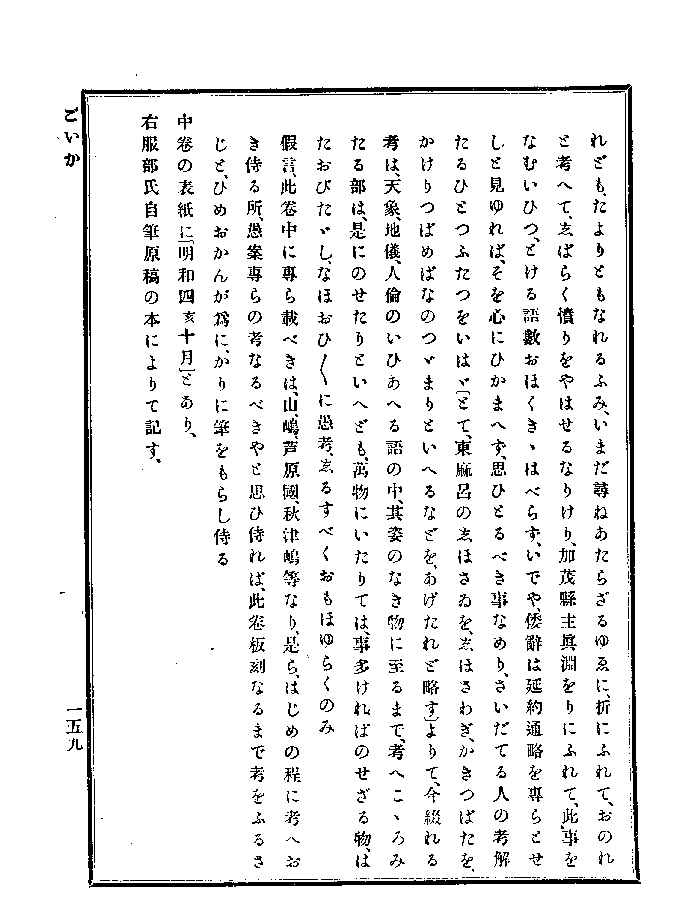 れども、たよりともなれるふみ、いまだ尋ねあたらざるゆゑに、折にふれて、おのれ
と考へて、ゑばらく憤りをやはせるなりけり、加茂縣主眞淵をりにふれて、此事を
なむいひつ、とける語數おほくきゝはべらず、いでや、倭辭は延約通略を專らとせ
しと見ゆれば、そを心にひかまへず、思ひとるべき事なめり、さいだてる人の考解
たるひとつふたつをいはゞ「とて、東麻呂のゑほさゐを、ゑほさわぎ、かきつばたを、
かけりつばめばなのつゞまりといへるなどを、あげたれど略す」よりて、今綴れる
考は、天象、地儀、人倫のいひあへる語の中、其姿のなき物に至るまで、考へこゝろみ
たる部は、是にのせたりといへども、萬物にいたりては、事多ければのせざる物、は
たおびたゞし、なほおひ〳〵に愚考、ゑるすべくおもほゆらくのみ
假言、此卷中に專ら載べきは、山、嶋、芦原國、秋津嶋等なり、是ら、はじめの程に考へお
き侍る所、愚案專らの考なるべきやと思ひ侍れば、此卷板刻なるまで考をふるさ
じと、ひめおかんが爲に、かりに筆をもらし侍る
中卷の表紙に「明和四亥十月」とあり、
右服部氏自筆原稿の本によりて記す、
ごいか
一五九